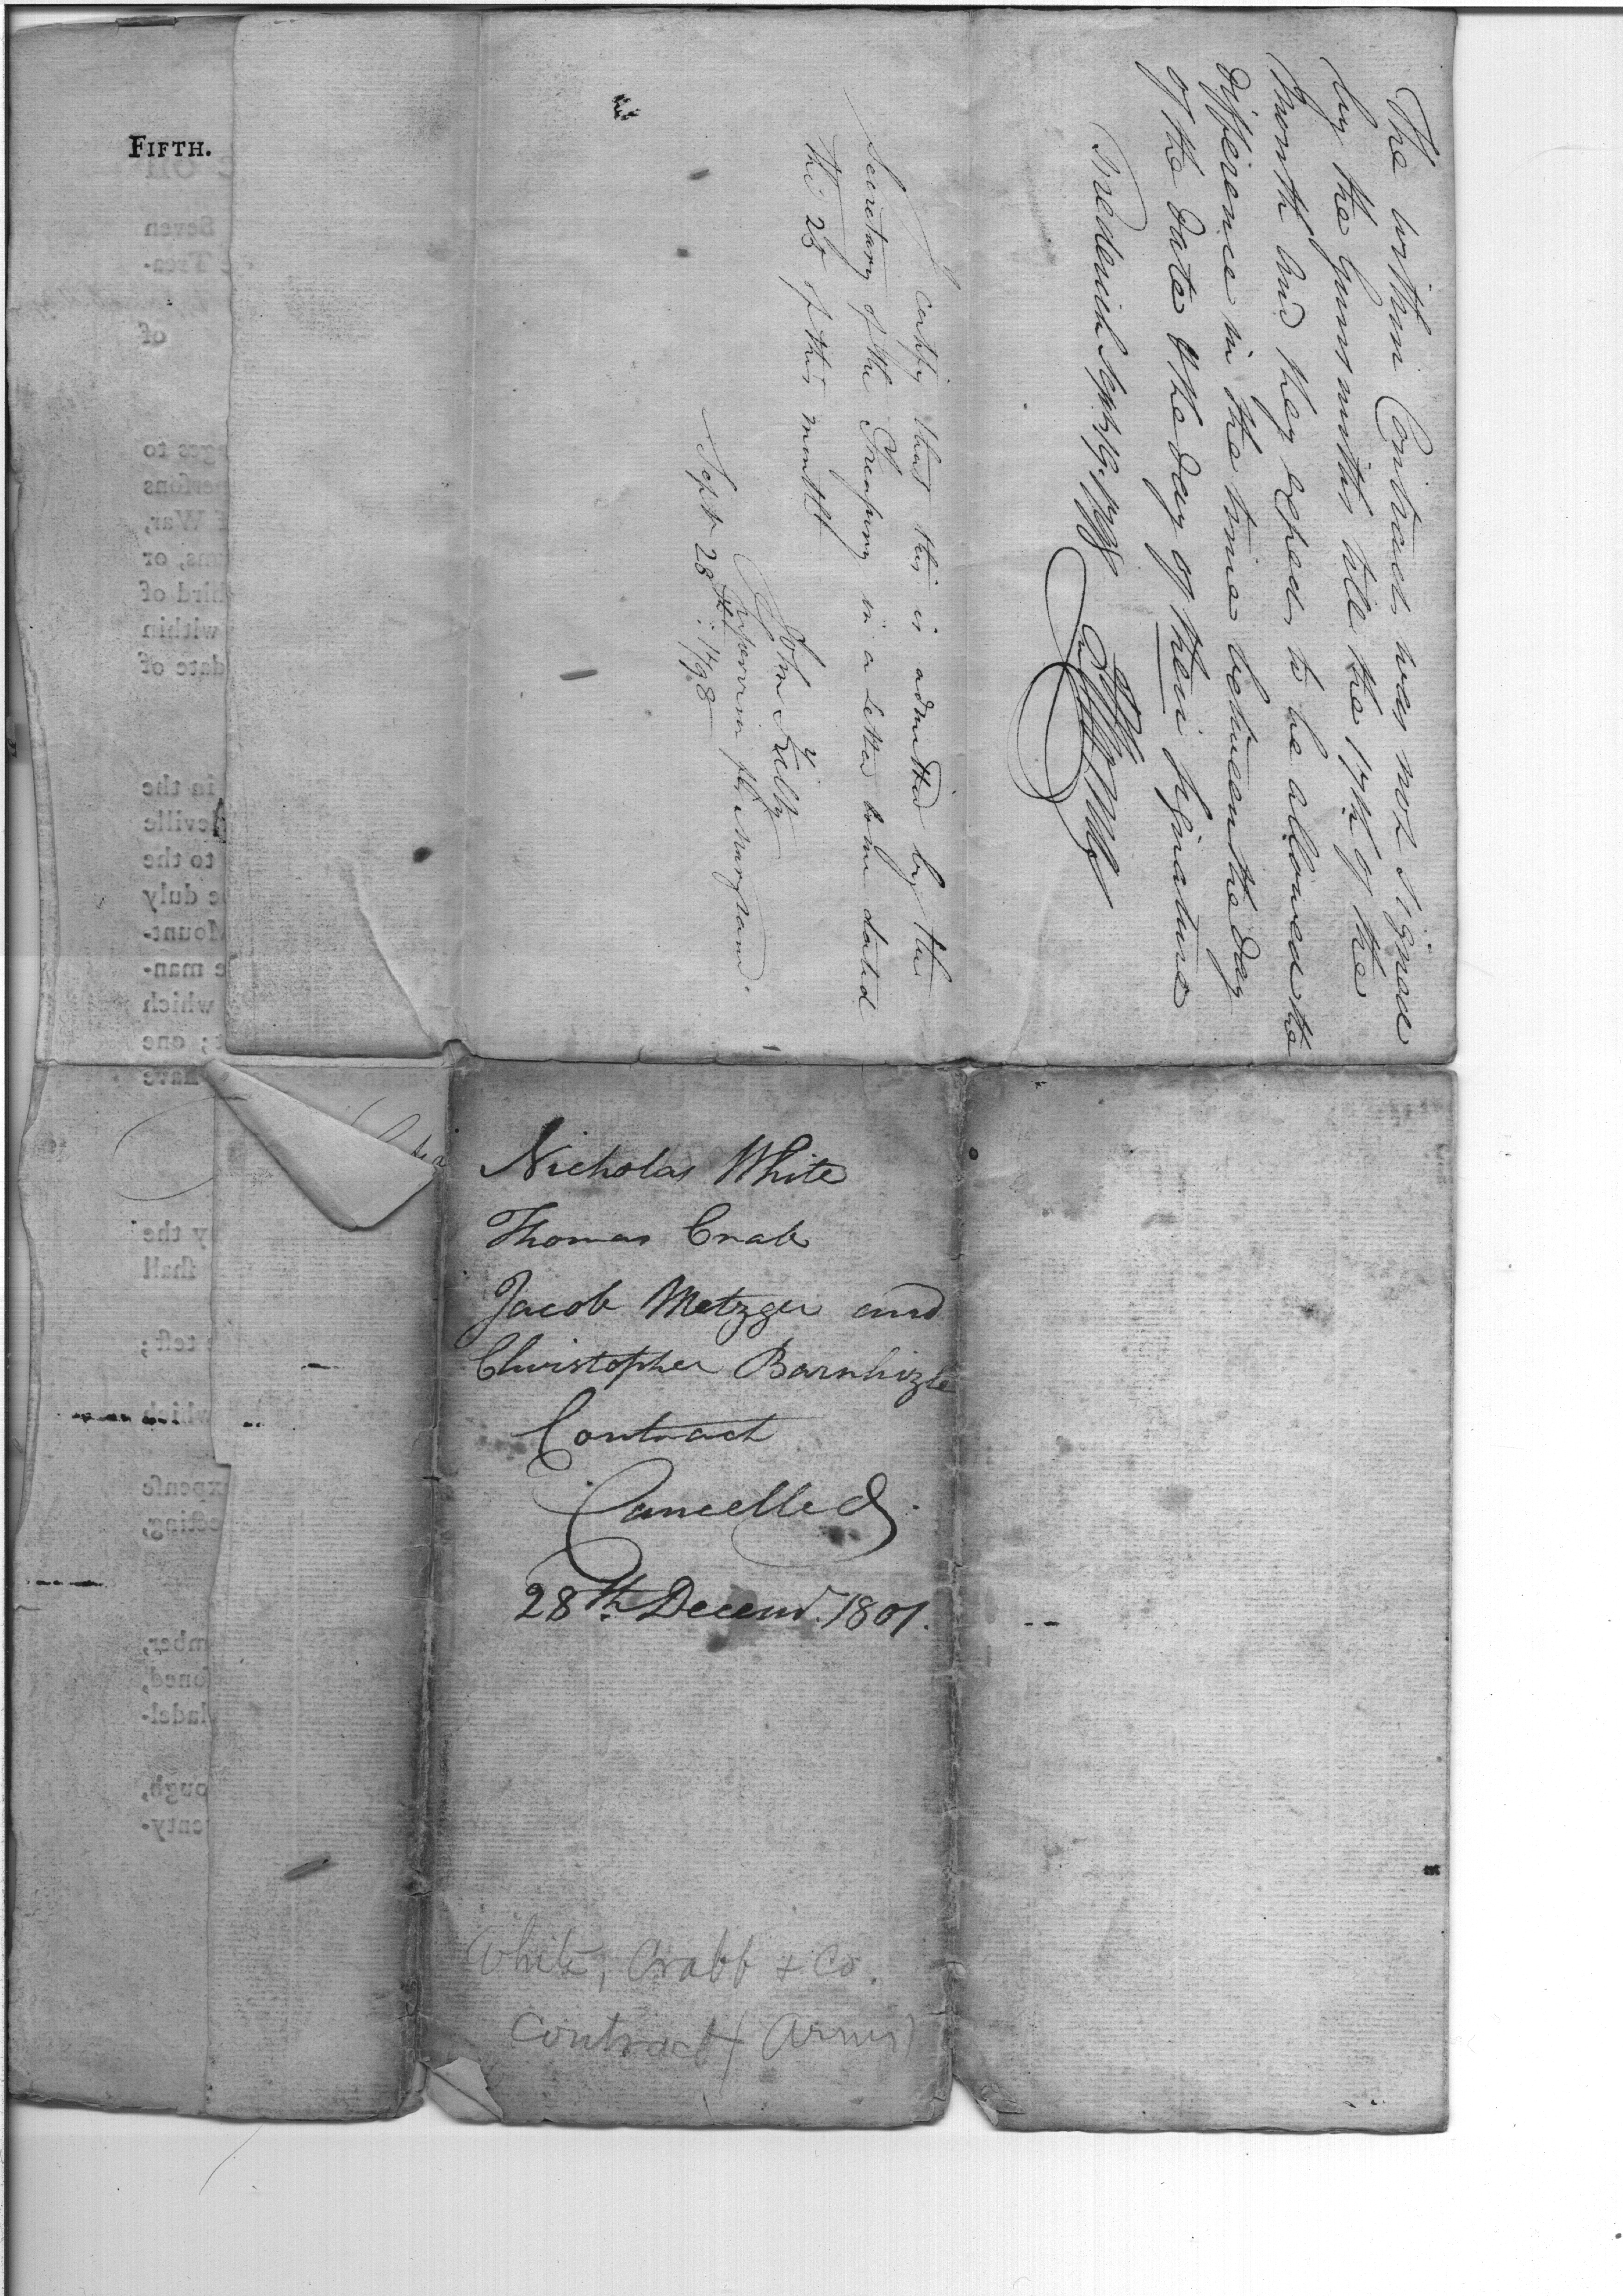 The within Contract was not Signed
by the Gunsmiths till the 17th of the
Month and they expect to be allowed the
difference in the time between the day
of the date & the day of their signature
Frederick Sept. 19. 1798
I certify that this is admitted by the
Secretary of the Treasury in a letter to me dated
the 25 of this month
John Kilty
Supervisor for Maryland.
Sept 28th: 1798
FIFTH.
Seven
Trea-
of
ges to
perſons
f War,
ms, or
hird of
within
date of
in the
neville
to the
e duly
Mount-
e man-
which
t; one
have
y the
ſhall
teſt;
which
xpenſe
eſting,
mber,
ſoned,
ladel-
ough,
enty-
Nicholas White
Thomas Crab
Jacob Metzger and
Christopher Barnhizle
Contract
Cancelled.
28th Decem.r 1801.
White, Crabb & Co.
Contract (Arms)